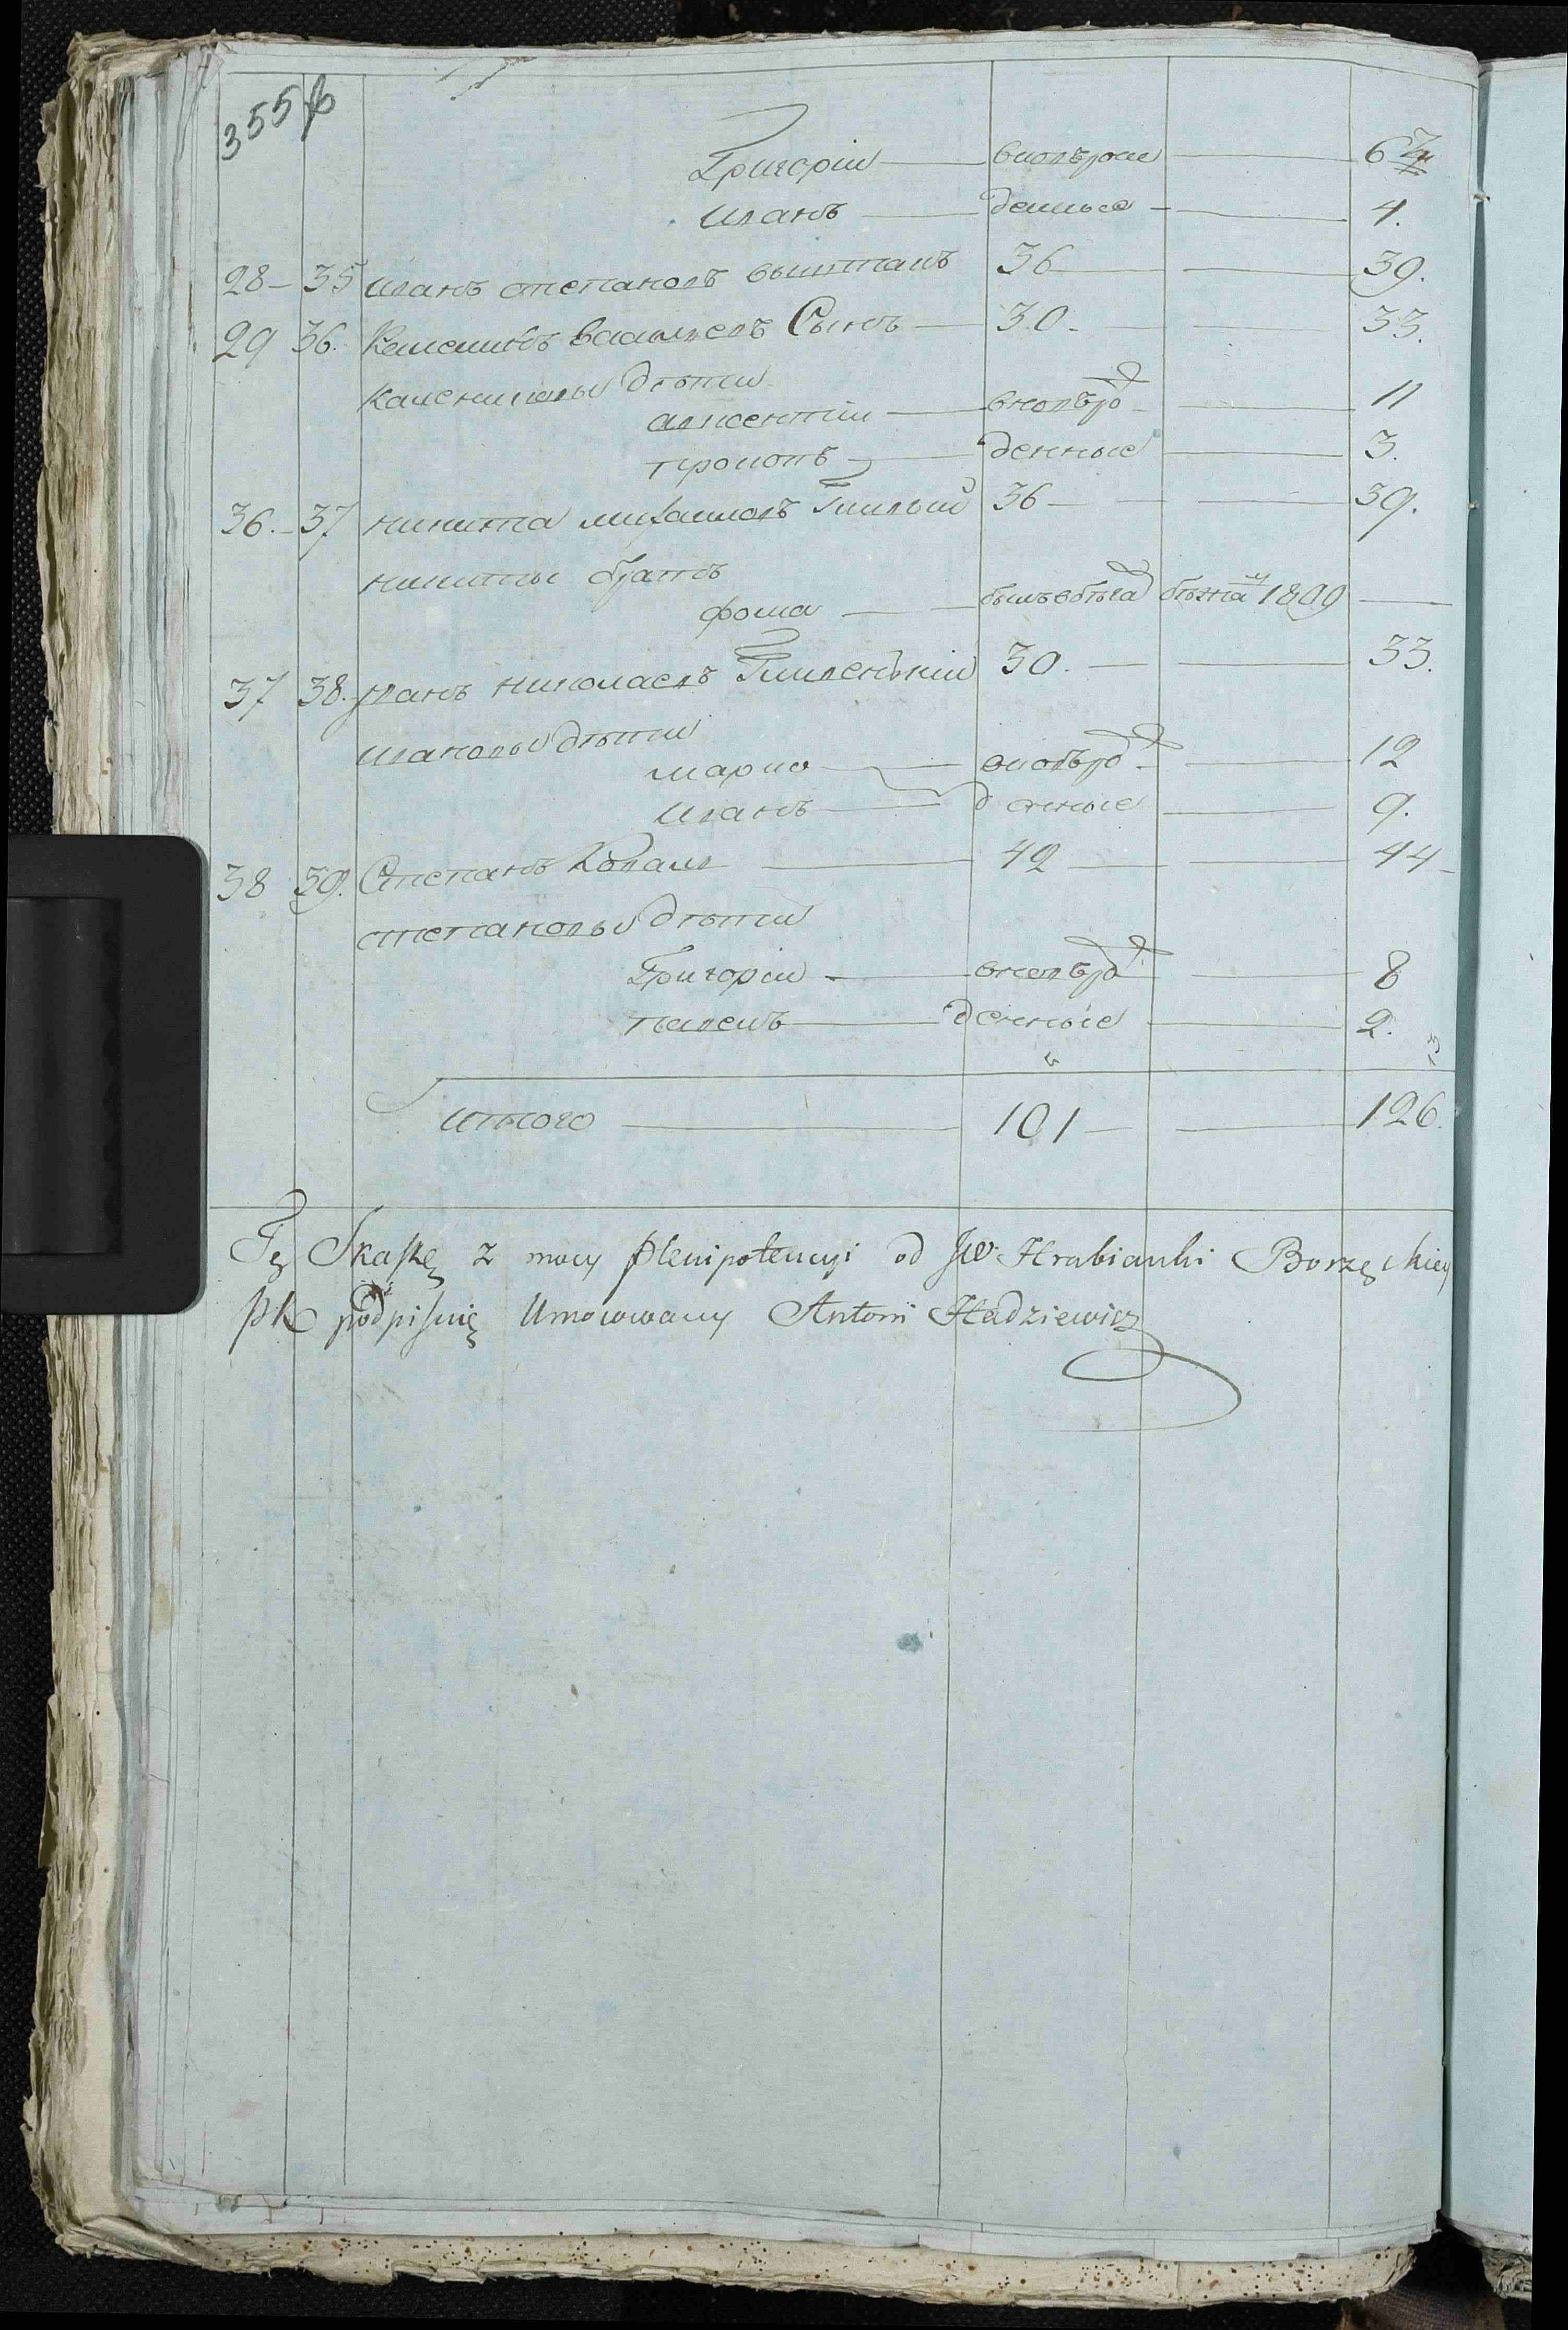 355 об
Григорій — вновъро — 6
Иванъ — денные — 4.
28 — 35 Иванъ степановъ 36 — 39.
29 36. Каленикъ васильевъ Сынъ — 30. — 33.
Калениковы дѣти
авксентій — вновъро — 11
прокопъ — денные — 3.
36. — 37 никита михаиловъ Гнилый 36 — 39.
никиты братъ
фома — былъ вбѣга бѣжа 1809 —
37 38. Иванъ николаевъ Гниленькій 30. — 33.
Ивановы дѣти
марко — вновъро — 12
Иванъ — денные — 9.
38 39. Степанъ Коваль — 42 — 44 —
степановы дѣти
Григорій — вновъро — 8
павелъ — денные — 2.
Итого — 101 — 126.
Tę Skaskę z mocy plenipotencyi od JW Hrabianki Borzęckiey
podpisuię Umocowany Antoni Hadziewicz